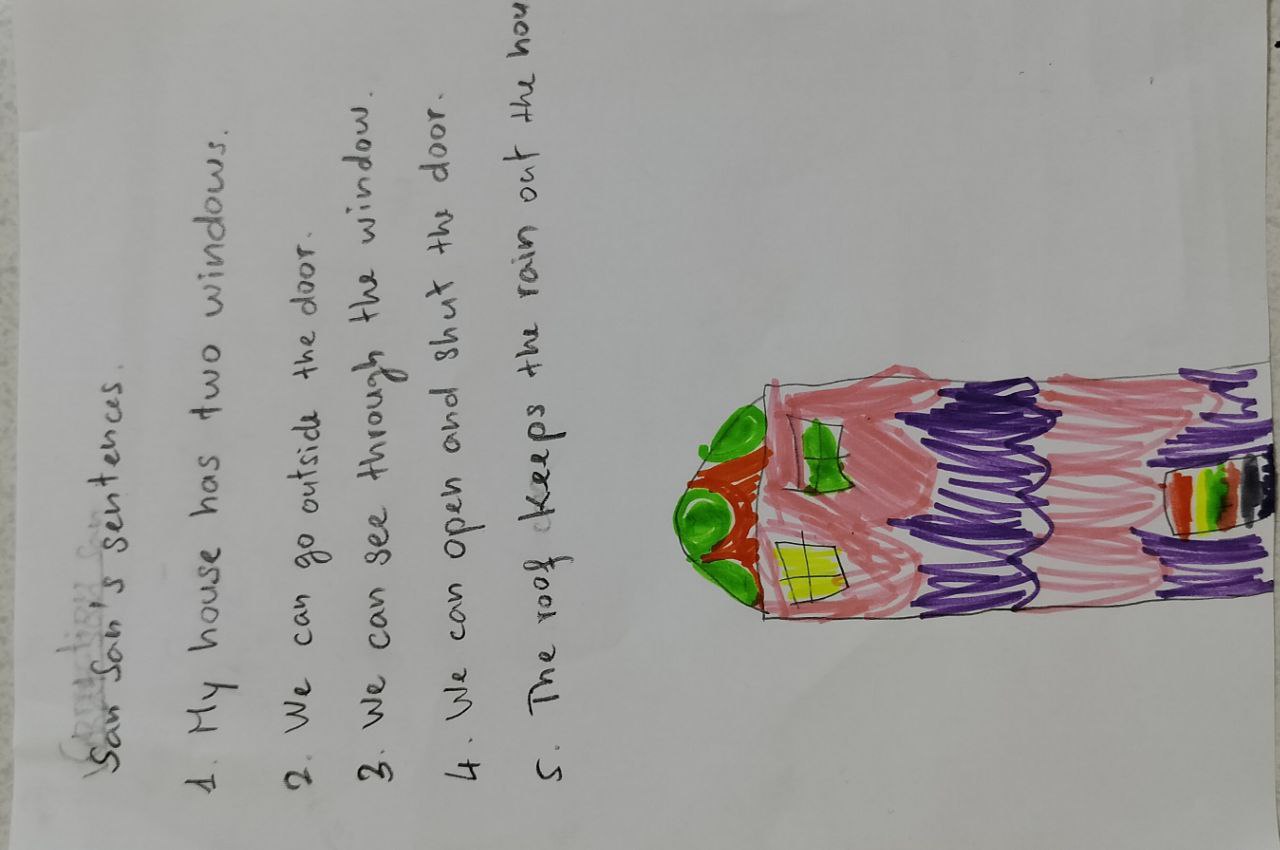 San San's sentences.
1. My house has two windows.
2. We can go outside the door.
3. We can see through the window.
4. We can open and shut the door.
5. The roof keeps the rain out the hou